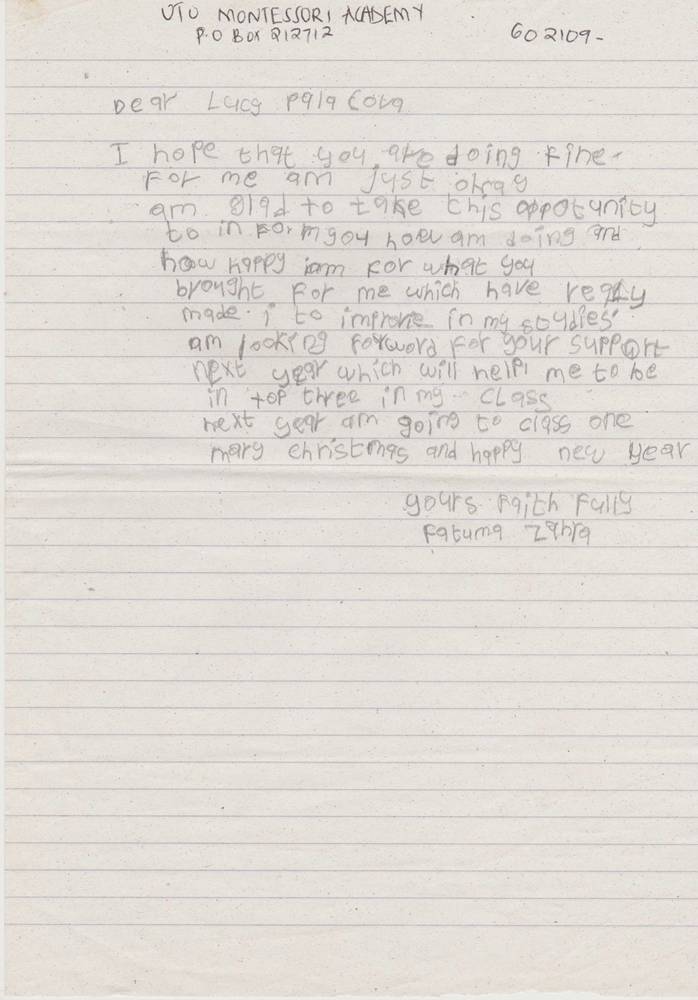 UTU MONTESSORI ACADEMY
P.O Box 212712 602109-
Dear Lucy Pala Cova
I hope that you are doing fine-
for me am just okay
am glad to take this oppotunity
to in form you how am doing and
how happy iam for what you
brought for me which have really
made. i to improve in my studies
am looking forword for your support
next year which will help me to be
in top three in my class
next year am going to class one
mary christmas and happy new year
yours faith fully
Fatuma Zahra